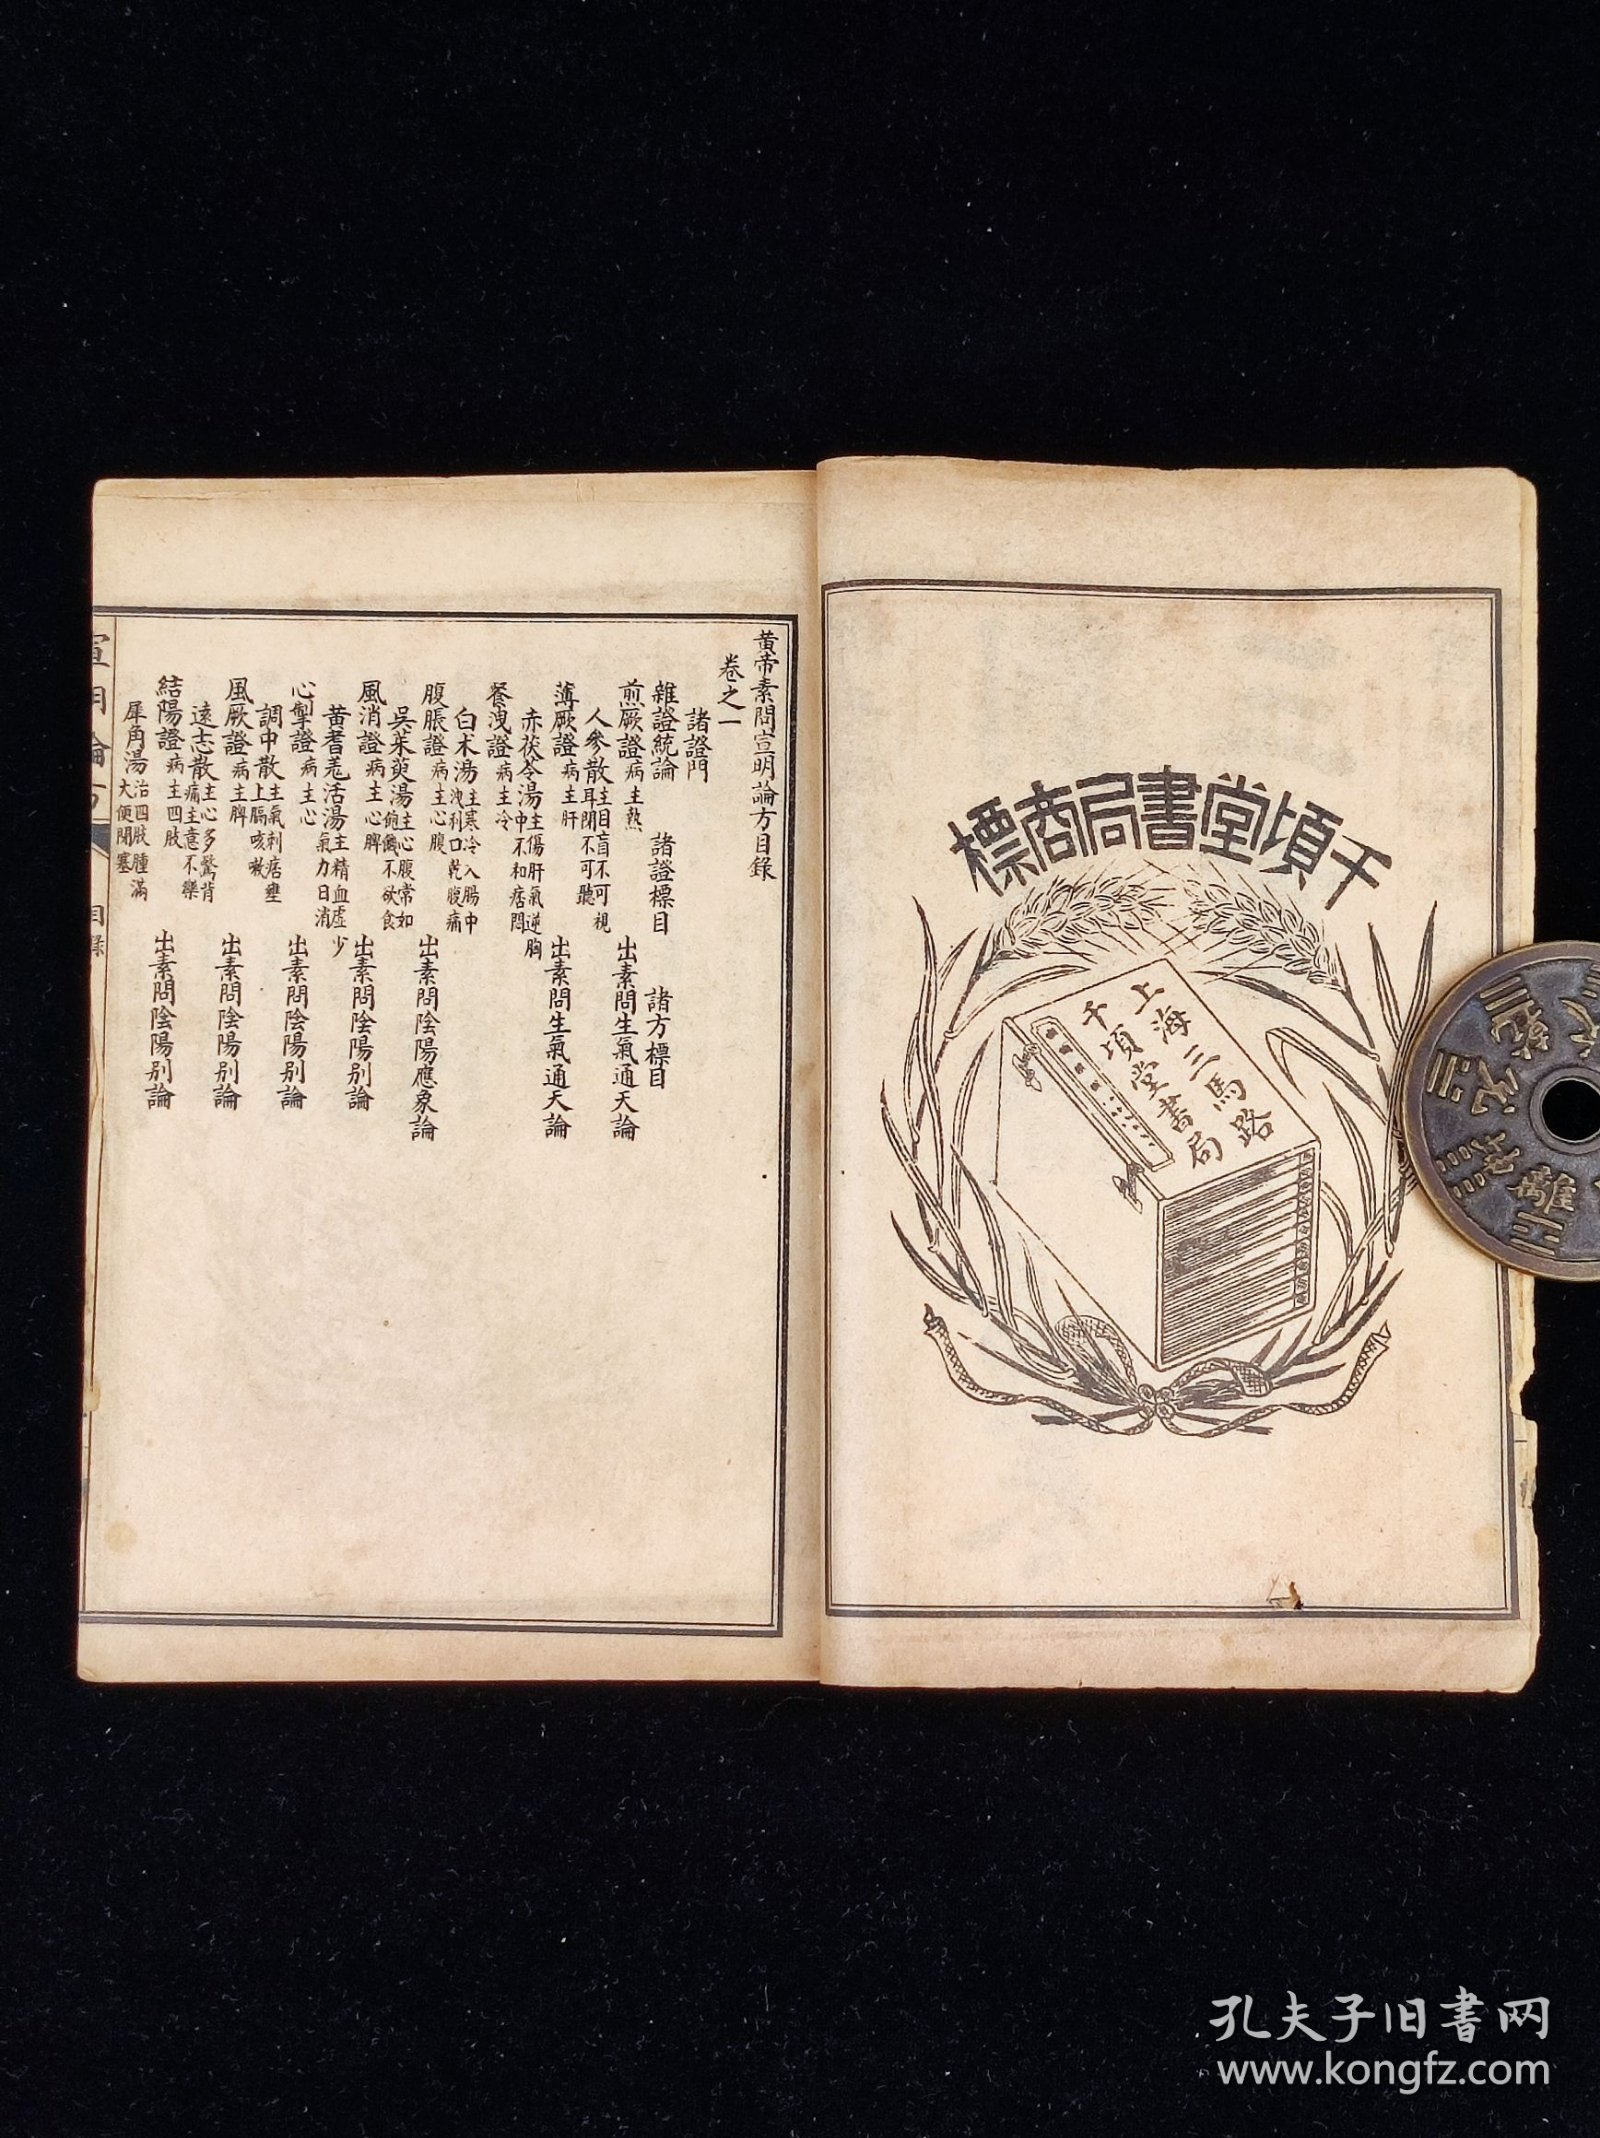 千頃堂書局商標
上海三馬路
千頃堂書局
黃帝素問宣明論方目錄
卷之一
諸證門
雜證統論 諸證標目 諸方標目
煎厥證病主熱 出素問生氣通天論
人參散主目盲不可視耳閉不可聽
薄厥證病主肝 出素問生氣通天論
赤茯苓湯主傷肝氣逆胸中不和痞悶
飧洩證病主冷
白朮湯主寒冷入腸中洩利口乾腹痛
腹脹證病主心腹 出素問陰陽應象論
吳茱萸湯主心腹常如飽饑不欲食
風消證病主心脾 出素問陰陽別論
黃耆羌活湯主精血虛少氣力日消
心掣證病主心 出素問陰陽別論
調中散主氣刺痞壅上膈咳嗽
風厥證病主脾 出素問陰陽別論
遠志散主心多驚背痛主意不樂
結陽證病主四肢 出素問陰陽別論
犀角湯治四肢腫滿大便閉塞
宣明論方
目錄
孔夫子旧书网
www.kongfz.com